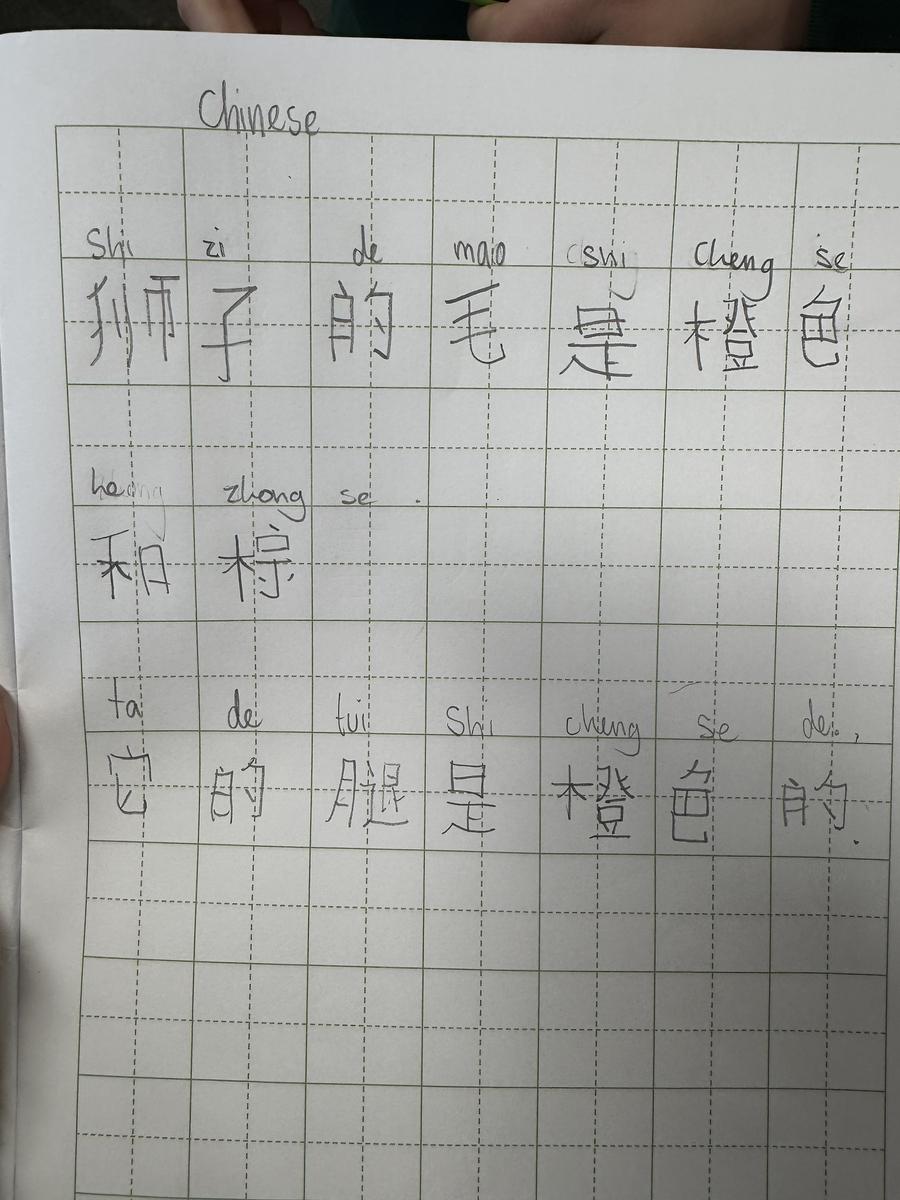 Chinese
Shi zi de mao shi Cheng se
狮子的毛是橙色
he zhong se .
和棕
ta de tui Shi cheng se de.,
它的腿是橙色的.